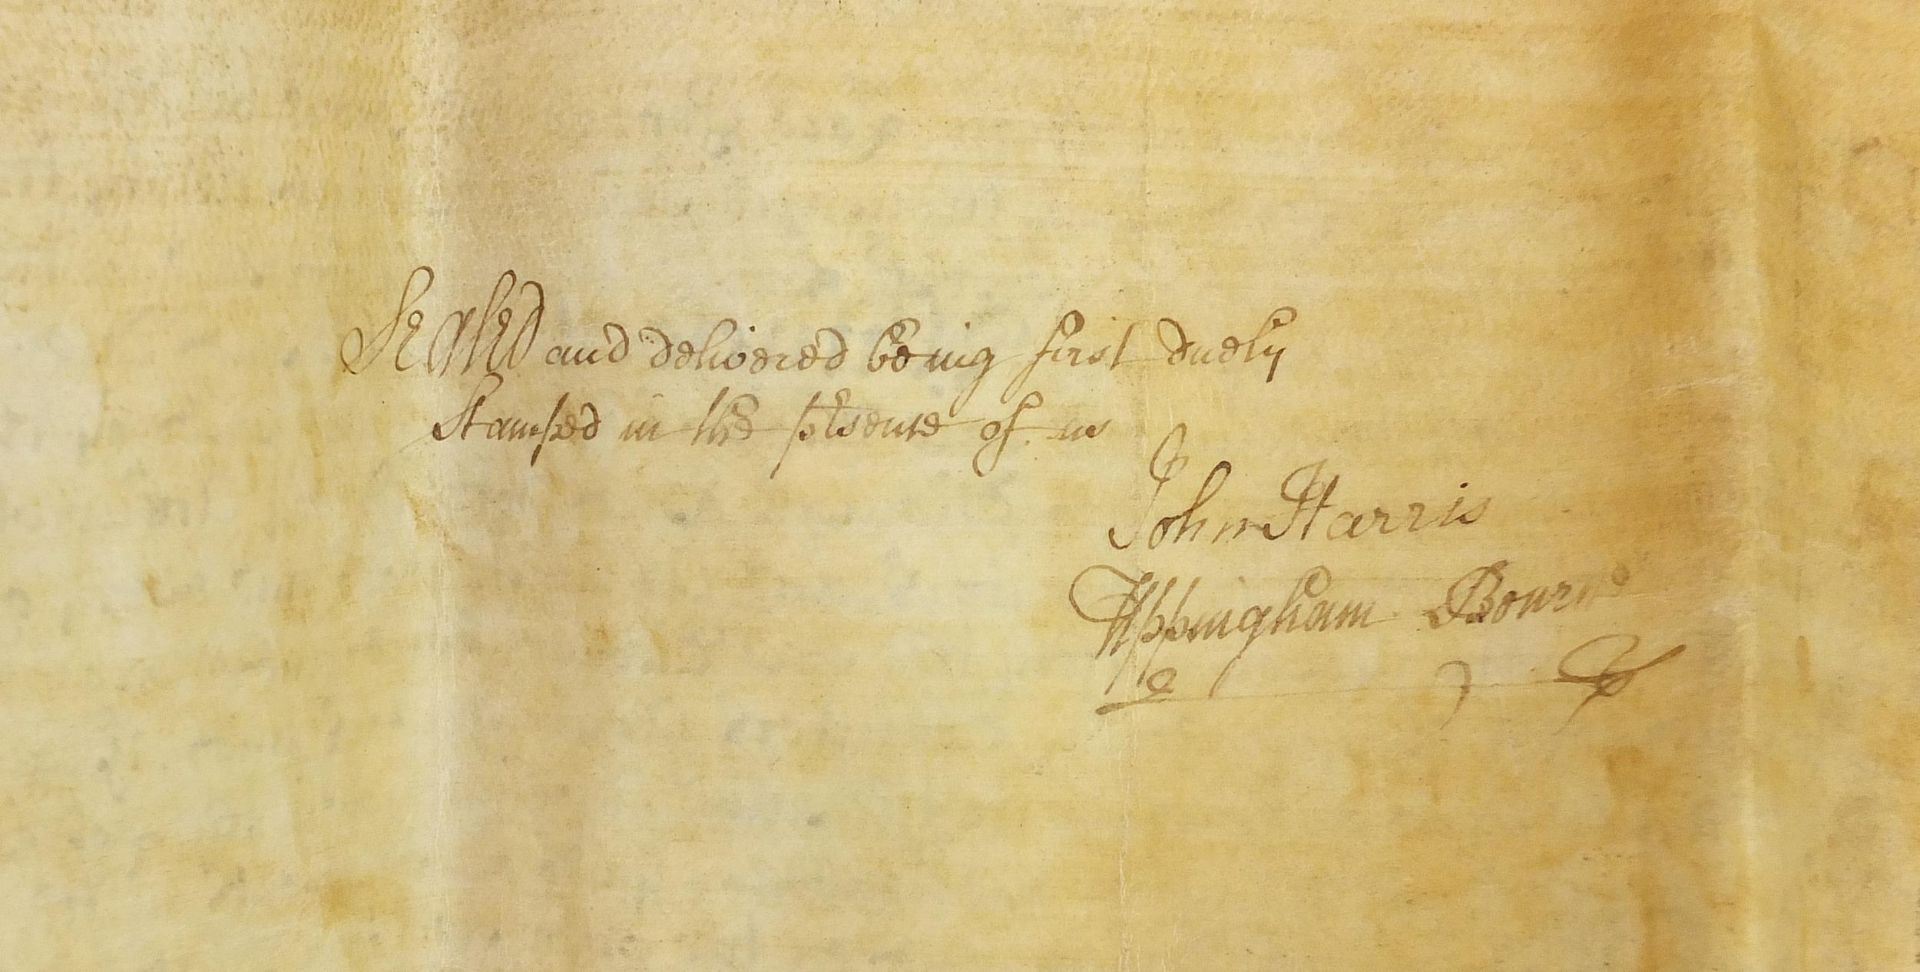 Sealed and delivered being first duely
Stamped in the presence of us
John Harris
Uppingham Bourne